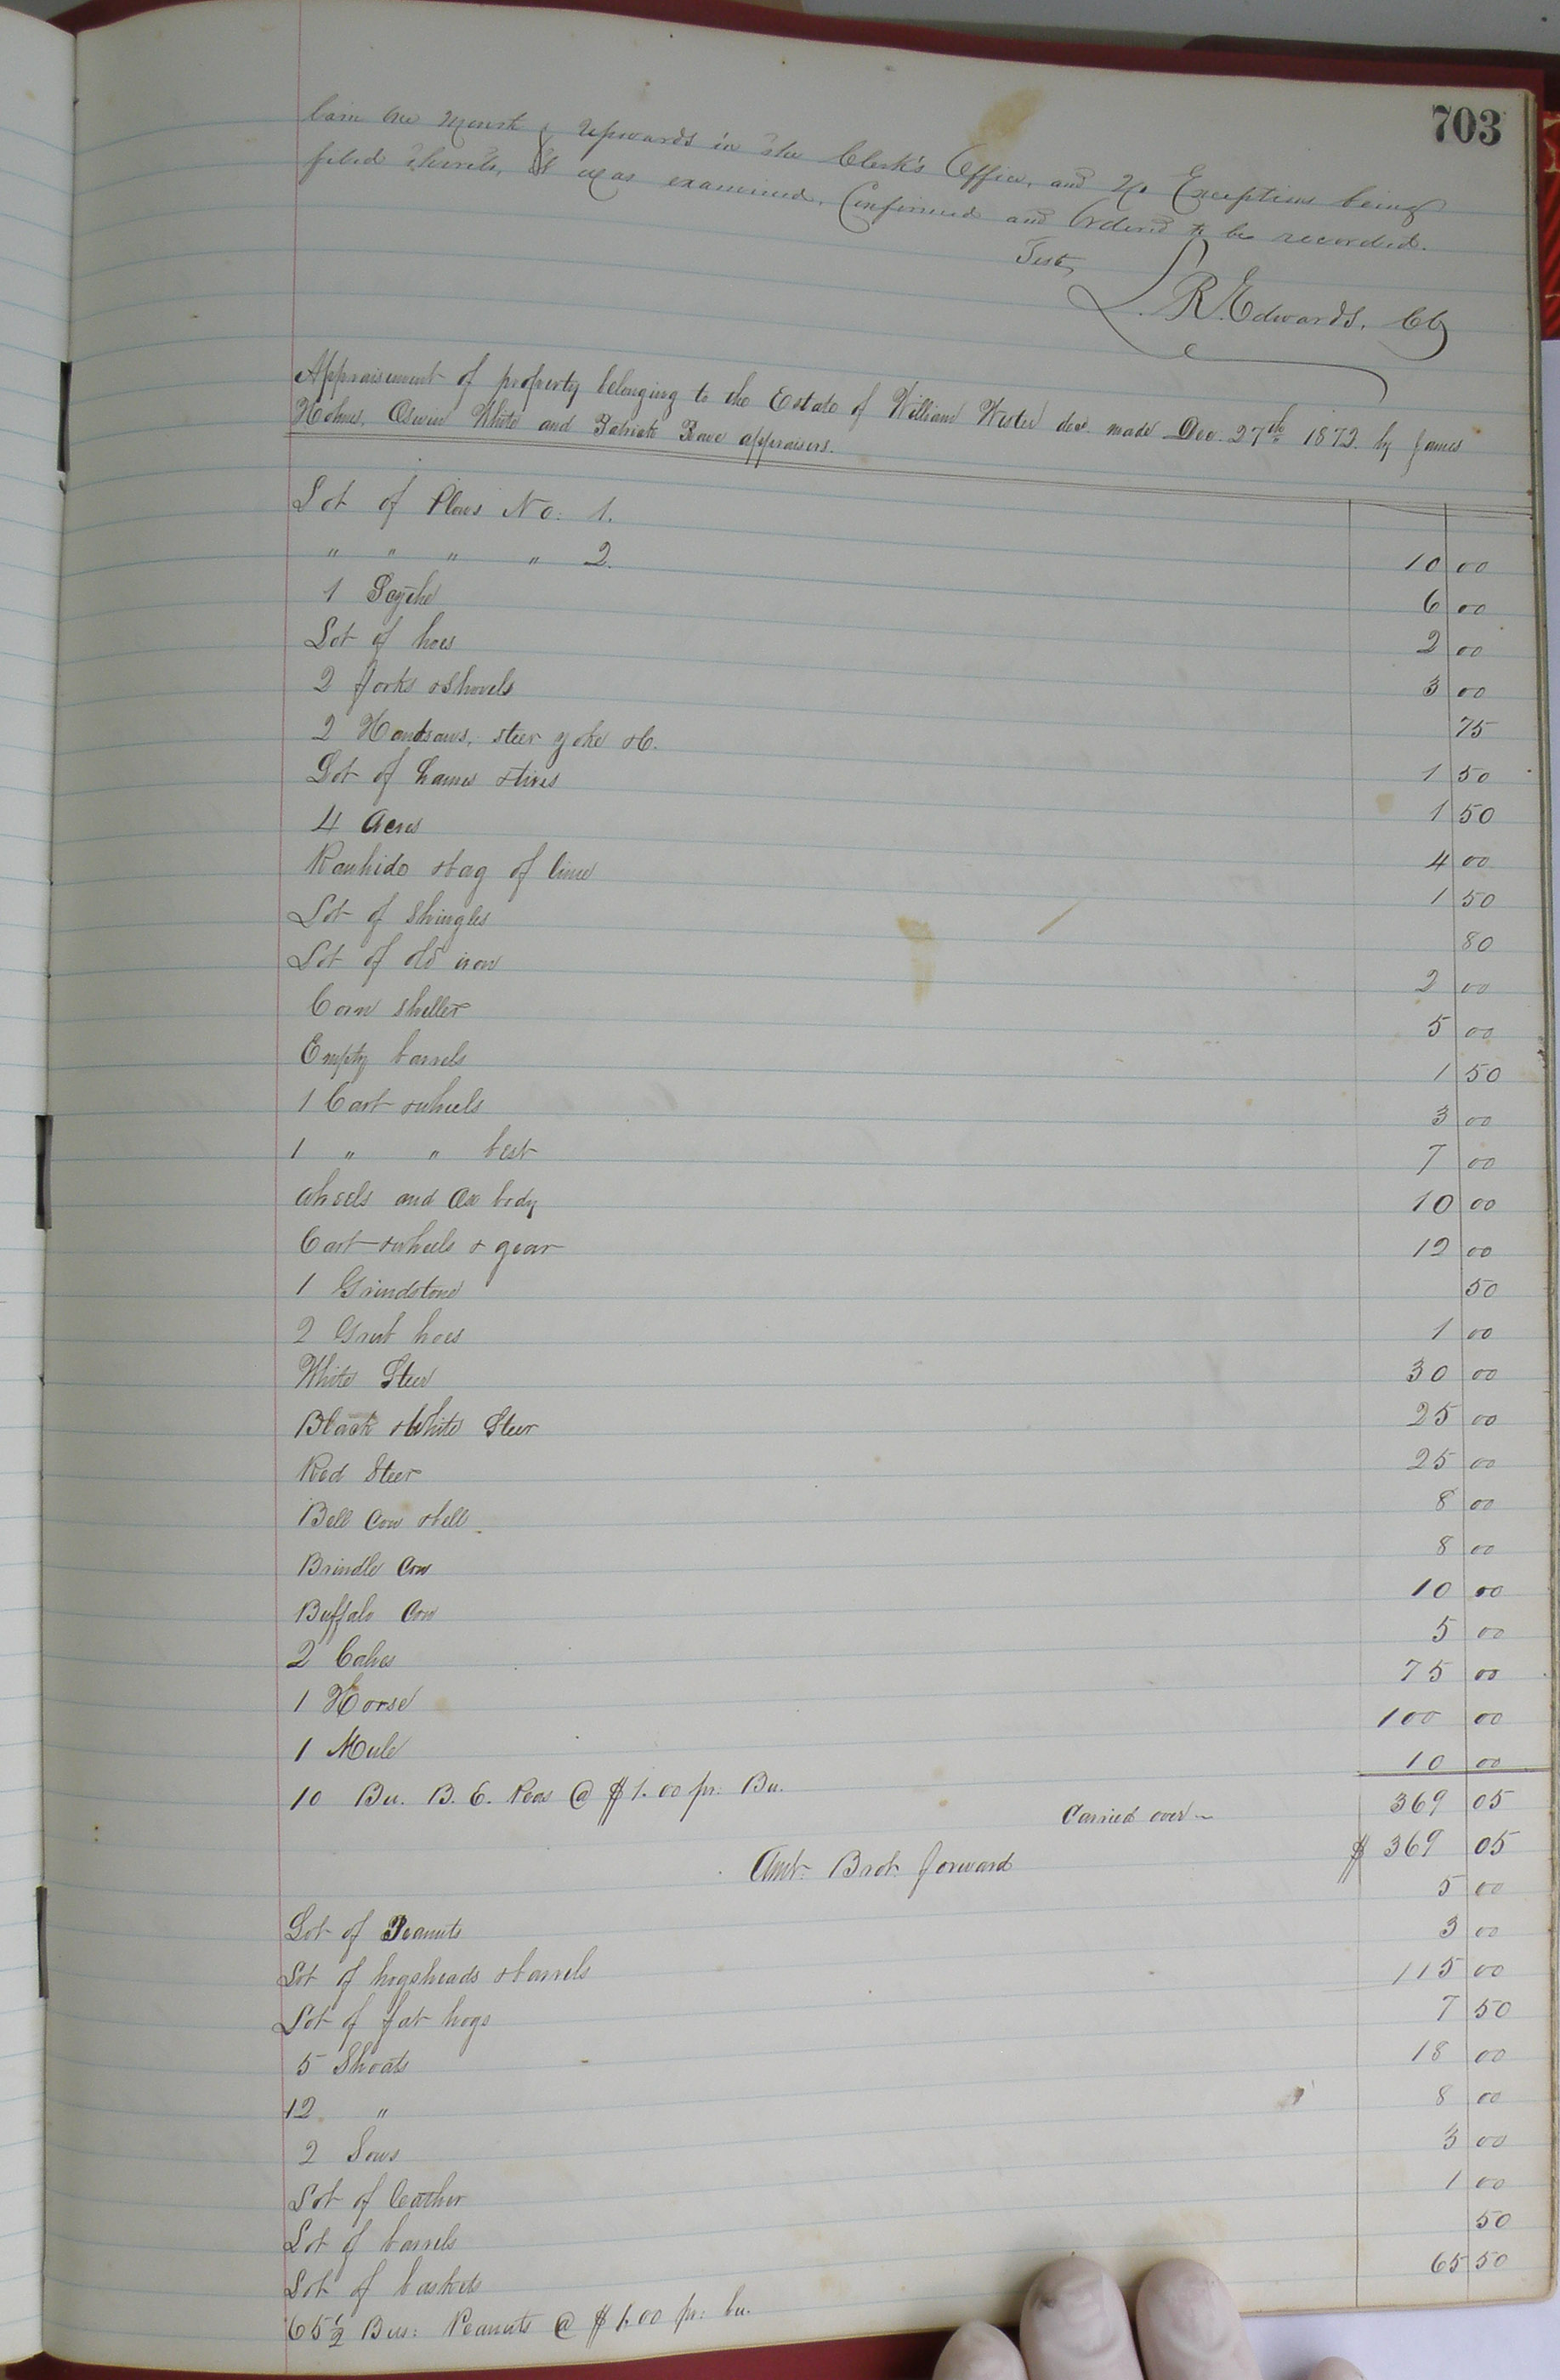 703
lain one month & upwards in the Clerk's Office, and no Exceptions being
filed thereto, it was examined, Confirmed and Ordered to be recorded.
Teste,
L. R. Edwards, CC
Appraisement of property belonging to the Estate of William Wester decd. made Dec. 27th 1872. by James
Holmes, Oswin White and Patrick appraisers.
Lot of Plows No: 1. 10 00
" " " " 2. 6 00
1 Scythe 2 00
Lot of hoes 3 00
2 forks & Shovels 75
2 Handsaws, steer yoke &c. 1 50
Lot of hames & tires 1 50
4 Axes 4 00
Rawhide & bag of lime 1 50
Lot of Shingles 80
Lot of old iron 2 00
Corn sheller 5 00
Empty barrels 1 50
1 Cart & wheels 3 00
1 " " best 7 00
Wheels and Ox body 10 00
Cart & wheels & gear 12 00
1 Grindstone 50
2 Grub hoes 1 00
White Steer 30 00
Black & White Steer 25 00
Red Steer 25 00
Bell Cow & bell 8 00
Brindle Cow 8 00
Buffalo Cow 10 00
2 Calves 5 00
1 Horse 75 00
1 Mule 100 00
10 Bu. B. E. Peas @ $1.00 pr: Bu. 10 00
Carried over 369 05
Amt: Brot. forward $ 369 05
Lot of Peanuts 5 00
Lot of hogsheads & barrels 3 00
Lot of fat hogs 115 00
5 Shoats 7 50
12 " 18 00
2 Sows 8 00
Lot of leather 3 00
Lot of barrels 1 00
Lot of baskets 50
65 1/2 Bus: Peanuts @ $1.00 pr: bu. 65 50